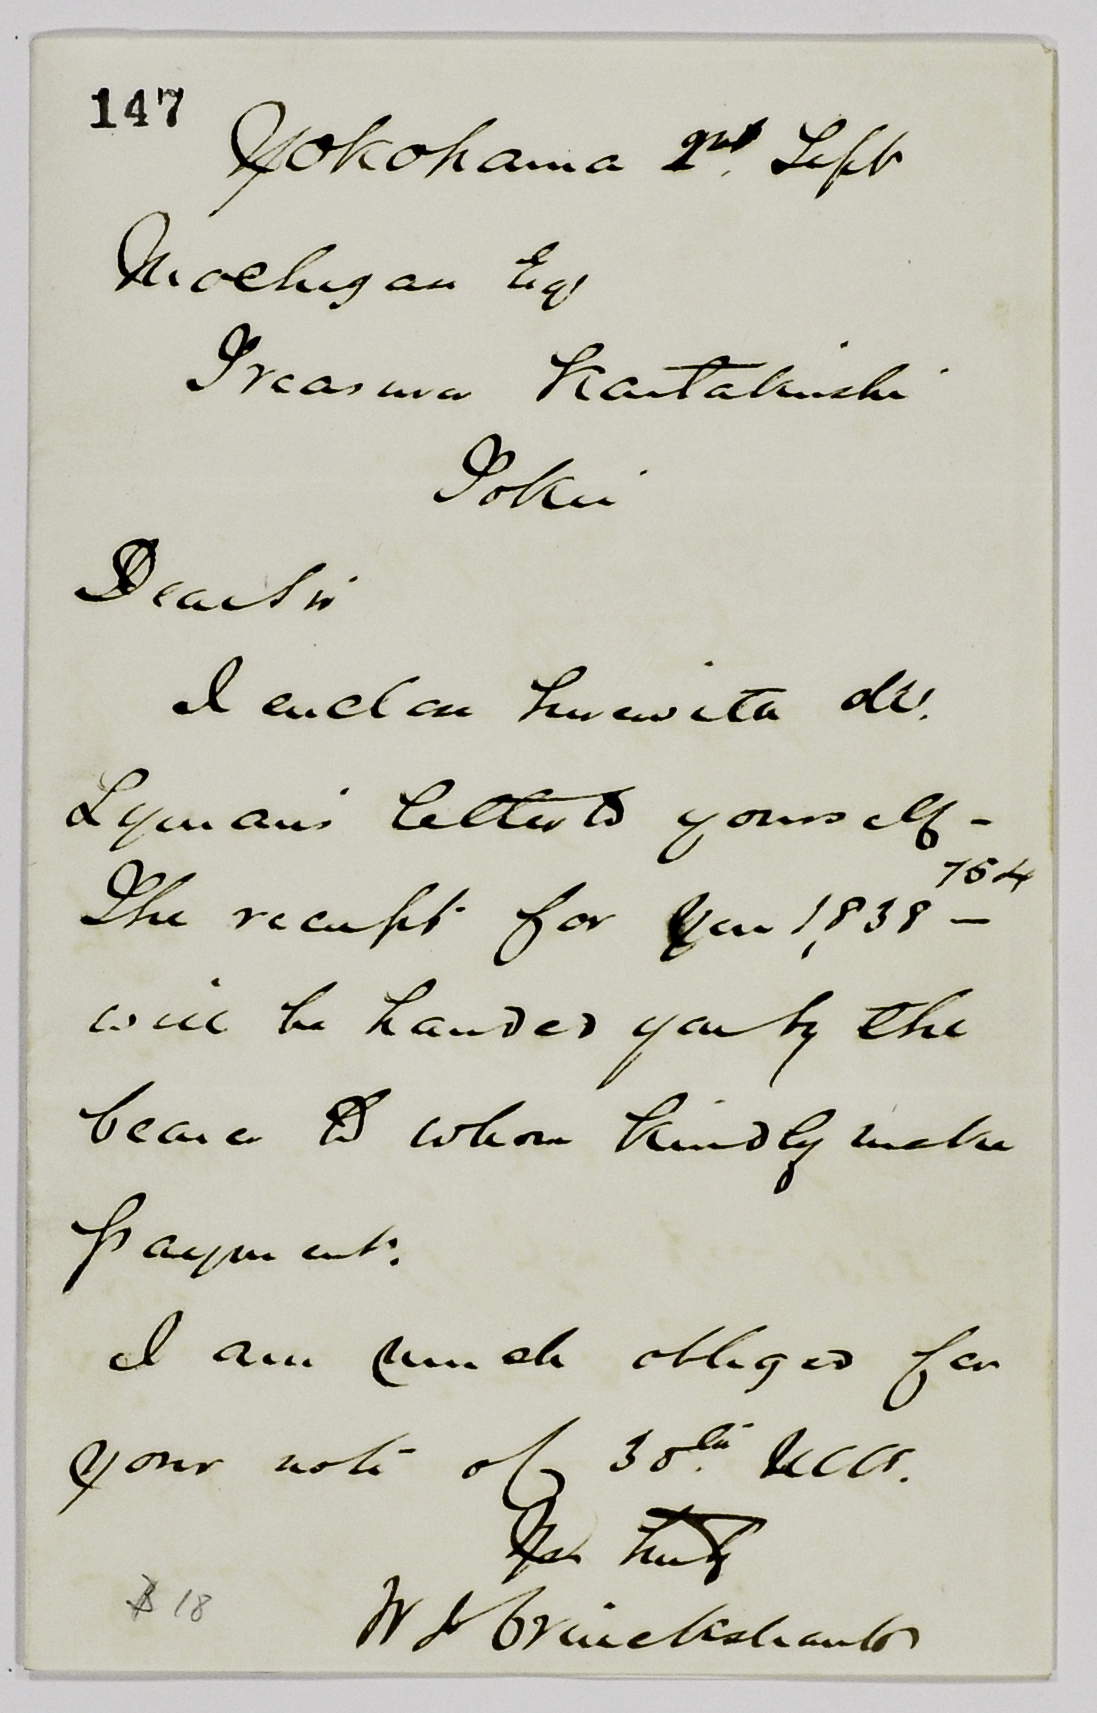 147
Yokohama 2nd. Sept
Mochigan Esq
Treasurer Kaitakushi
Tokei
Dear Sir
I enclose herewith Mr.
Lyman's letter to yourself -
The receipt for Yen 1,838 754 —
will be handed you by the
bearer to whom kindly make
payment.
I am much obliged for
your note of 30th. ulto.
Yrs truly
W J Cruickshank
18